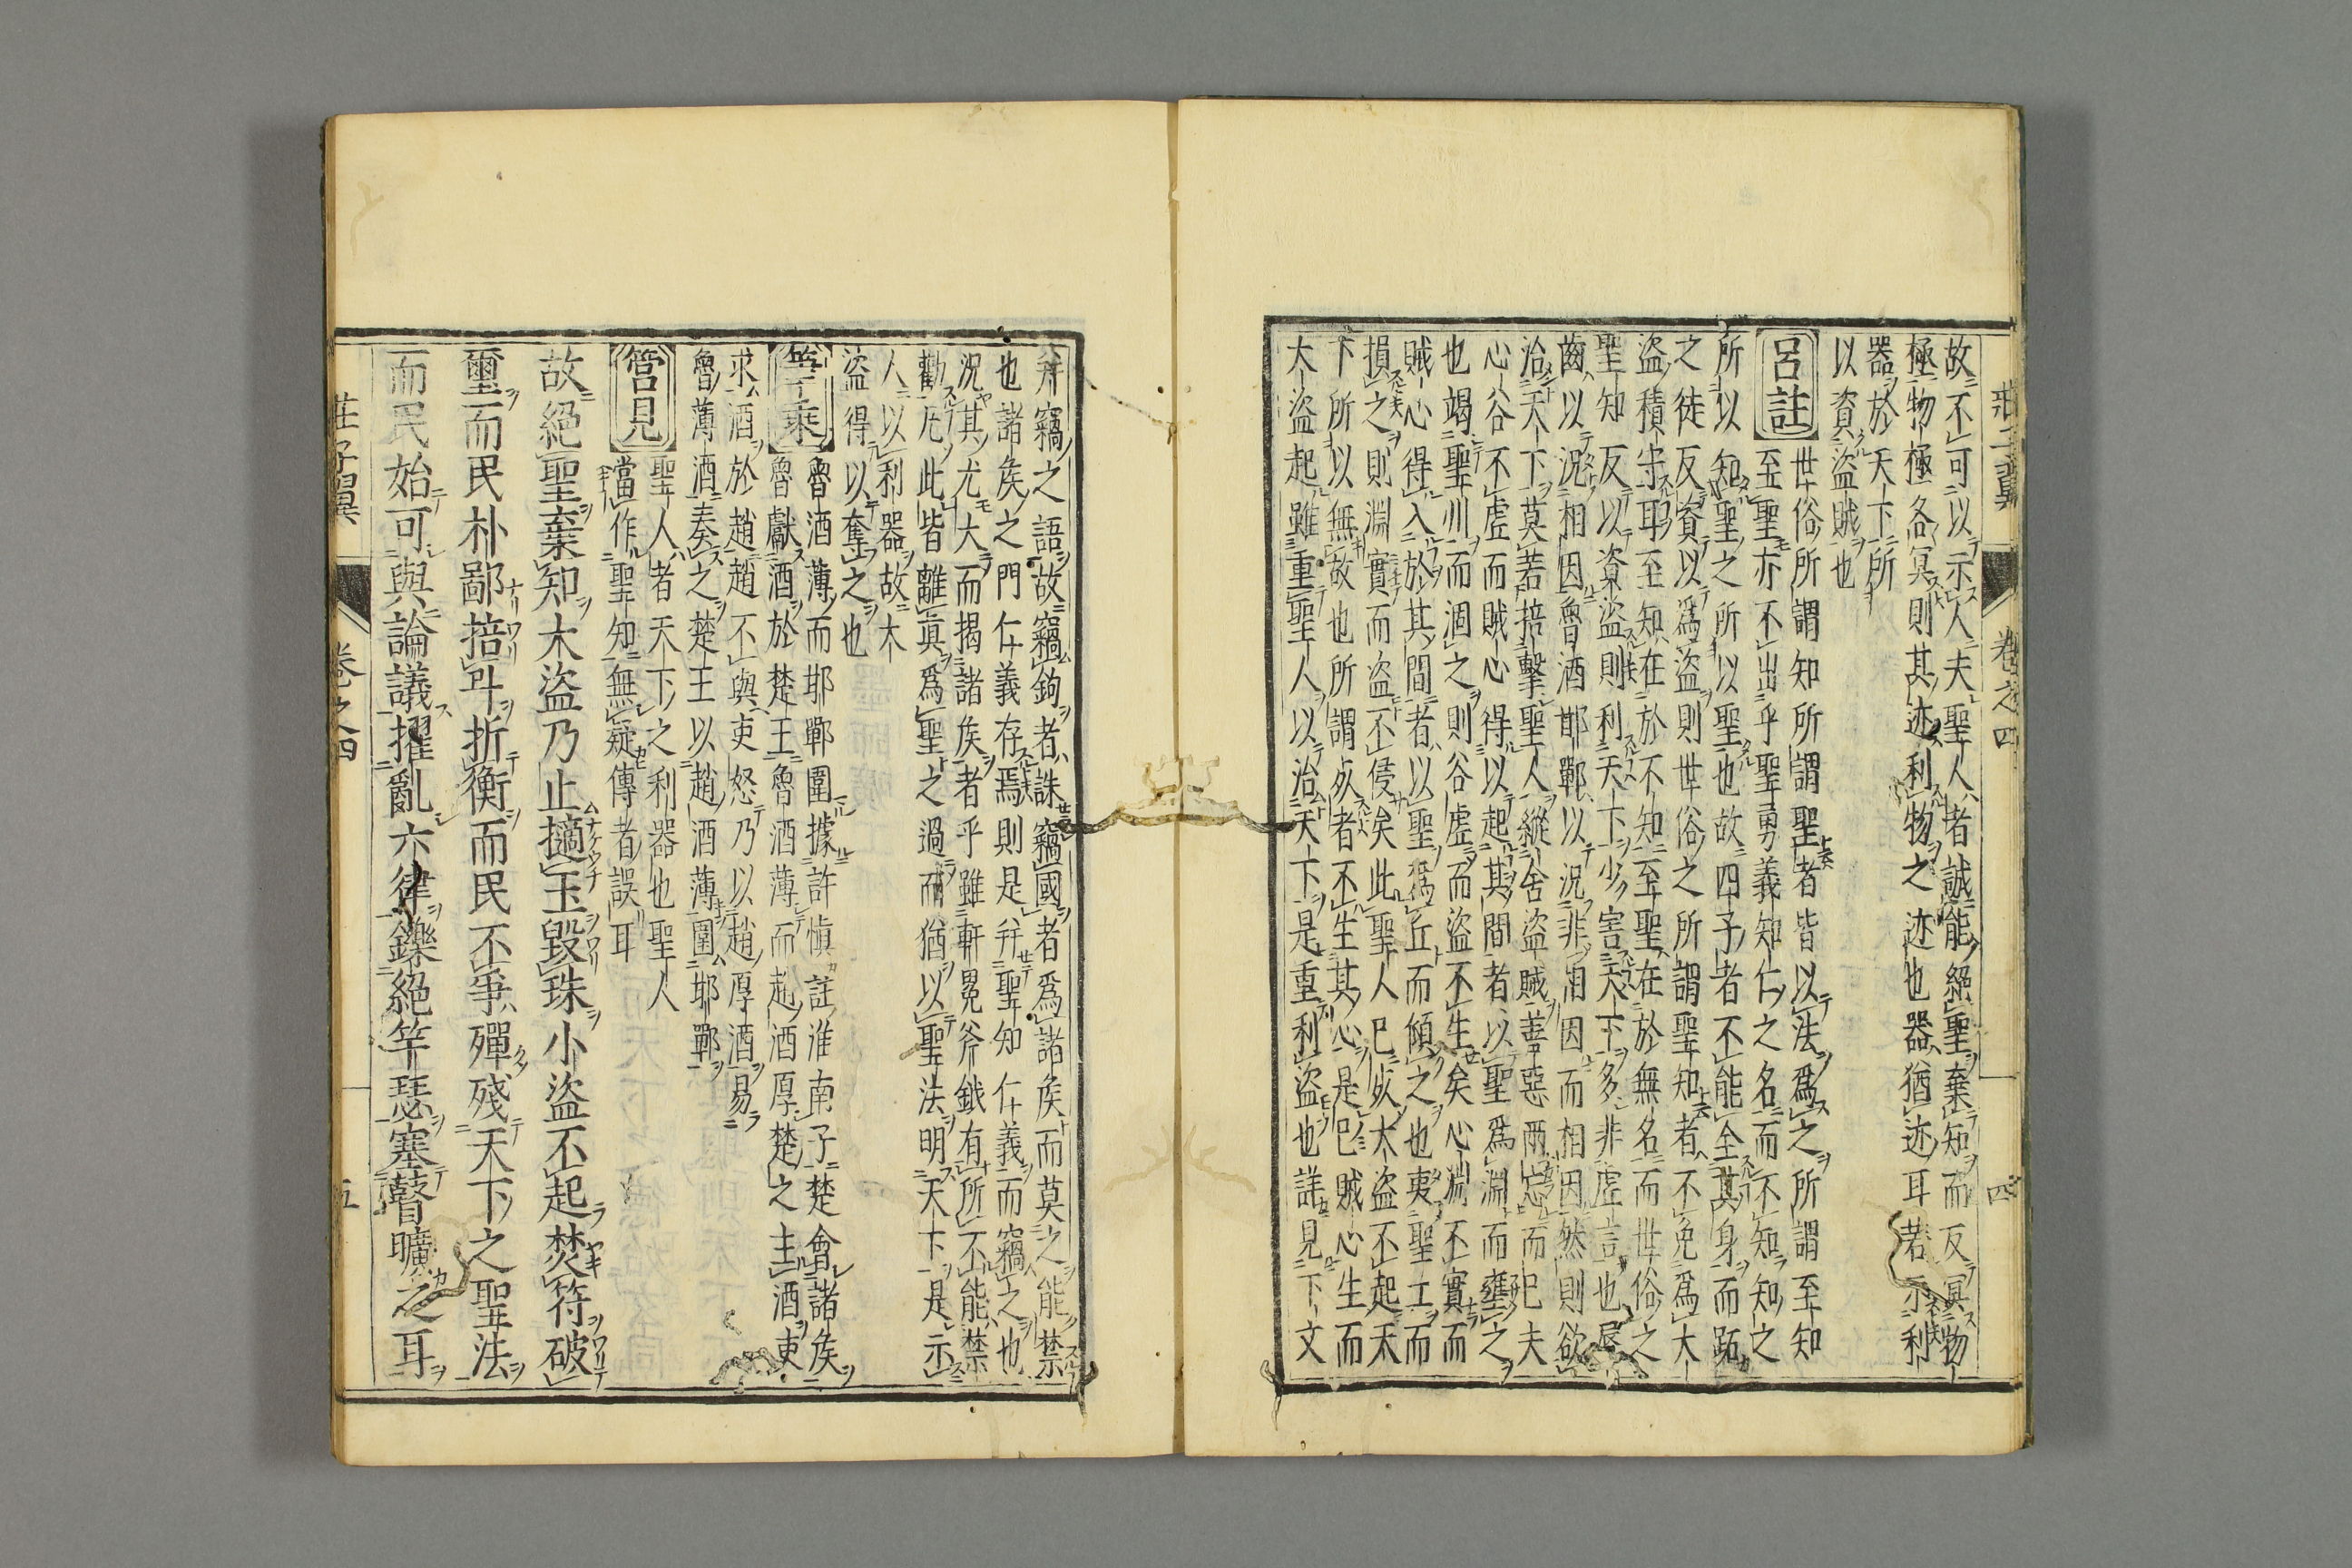 莊子翼 卷之四 四
故不可以示人夫聖人者誠能絕聖棄知而反冥物
極物極各冥則其迹利物之迹也器猶迹耳若示利
器於天下所
以資盜賊也
呂註
世俗所謂知所謂聖者皆以法爲之所謂至知
至聖亦不出乎聖勇義知仁之名而不知知之
所以知聖之所以聖也故四子者不能全其身而跖
之徒反資以爲盜則世俗之所謂聖知者不免爲大
盜積守耶至知在於不知至聖在於無名而世俗之
聖知反以資盜則利天下少害天下多非虛言也唇
齒以況相因魯酒邯鄲以況非相因而相因然則欲
治天下莫若掊擊聖人縱舍盜賊善惡兩忘而已夫
心谷不虛而賊心得以起其間者以聖爲淵而壅之
也竭聖川而涸之則谷虛而盜不生矣心淵不實而
賊心得入於其間者以聖爲丘而傾之也夷聖丘而
損之則淵實而盜不侵矣此聖人已死大盜不起天
下所以無故也所謂死者不生其心是已賊心生而
大盜起雖重聖人以治天下是重利盜也詳見下文
斧竊之語故竊鉤者誅竊國者爲諸侯而莫之能禁
也諸侯之門仁義存焉則是幷聖知仁義而竊之也
況其尤大而揭諸侯者乎雖軒冕斧鉞有所不能禁
勸凡此皆離眞爲聖之過而猶以聖法明天下是示
人以利器故大
盜得以奪之也
筆乘
魯酒薄而邯鄲圍據許愼註淮南子楚會諸侯
魯獻酒於楚王魯酒薄而趙酒厚楚之主酒吏
求酒於趙趙不與吏怒乃以趙厚酒易
魯薄酒奏之楚王以趙酒薄圍邯鄲
管見
聖人者天下之利器也聖人
當作聖知無疑傳者誤耳
故絕聖棄知大盜乃止擿玉毀珠小盜不起焚符破
璽而民朴鄙掊斗折衡而民不爭殫殘天下之聖法
而民始可與論議擢亂六律鑠絕竽瑟塞瞽曠之耳
莊子翼 卷之四 五